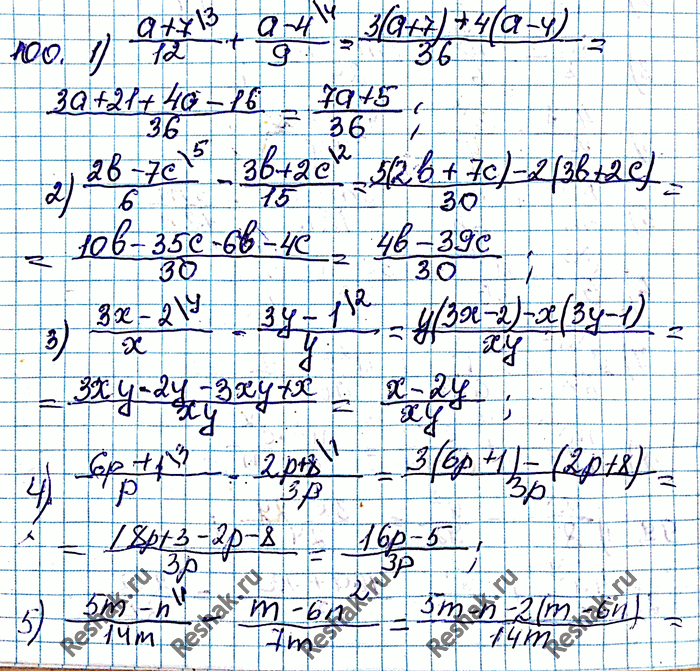 100. 1) (a+7\3)/12 + (a-4\4)/9 = (3(a+7)+4(a-4))/36 =
(3a+21+4a-16)/36 = (7a+5)/36 ;
2) (2b-7c\5)/6 - (3b+2c\2)/15 = (5(2b+7c)-2(3b+2c))/30 =
= (10b-35c-6b-4c)/30 = (4b-39c)/30 ;
3) (3x-2\y)/x - (3y-1\2)/y = (y(3x-2)-x(3y-1))/xy =
= (3xy-2y-3xy+x)/xy = (x-2y)/xy ;
4) (6p+1\3)/p - (2p+8\1)/3p = (3(6p+1)-(2p+8))/3p =
= (18p+3-2p-8)/3p = (16p-5)/3p ;
5) (5m-n\1)/14m - (m-6n\2)/7m = (5m-n-2(m-6n))/14m =
Reshak.ru Reshak.ru Reshak.ru Reshak.ru